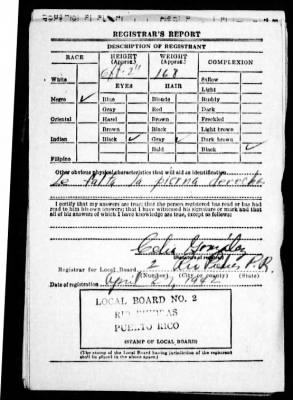 REGISTRAR'S REPORT
DESCRIPTION OF REGISTRANT
RACE HEIGHT (Approx.) WEIGHT (Approx.) COMPLEXION
White 168 Sallow
Light
EYES HAIR
Negro ✓ Blue Blonde Ruddy
Gray Red Dark
Oriental Hazel Brown Freckled
Brown Black Light brown
Indian Black ✓ Gray ✓ Dark brown
Bald Black ✓
Filipino
Other obvious physical characteristics that will aid in identification
Le falta la pierna derecha
I certify that my answers are true; that the person registered has read or has had
read to him his own answers; that I have witnessed his signature or mark and that
all of his answers of which I have knowledge are true, except as follows:
Celia González
Registrar for Local Board 2 Rio Piedras P.R.
(Number) (City or county) (State)
Date of registration April 27, 1942
LOCAL BOARD NO. 2
RIO PIEDRAS
PUERTO RICO
(STAMP OF LOCAL BOARD)
(The stamp of the Local Board having jurisdiction of the registrant
shall be placed in the above space.)